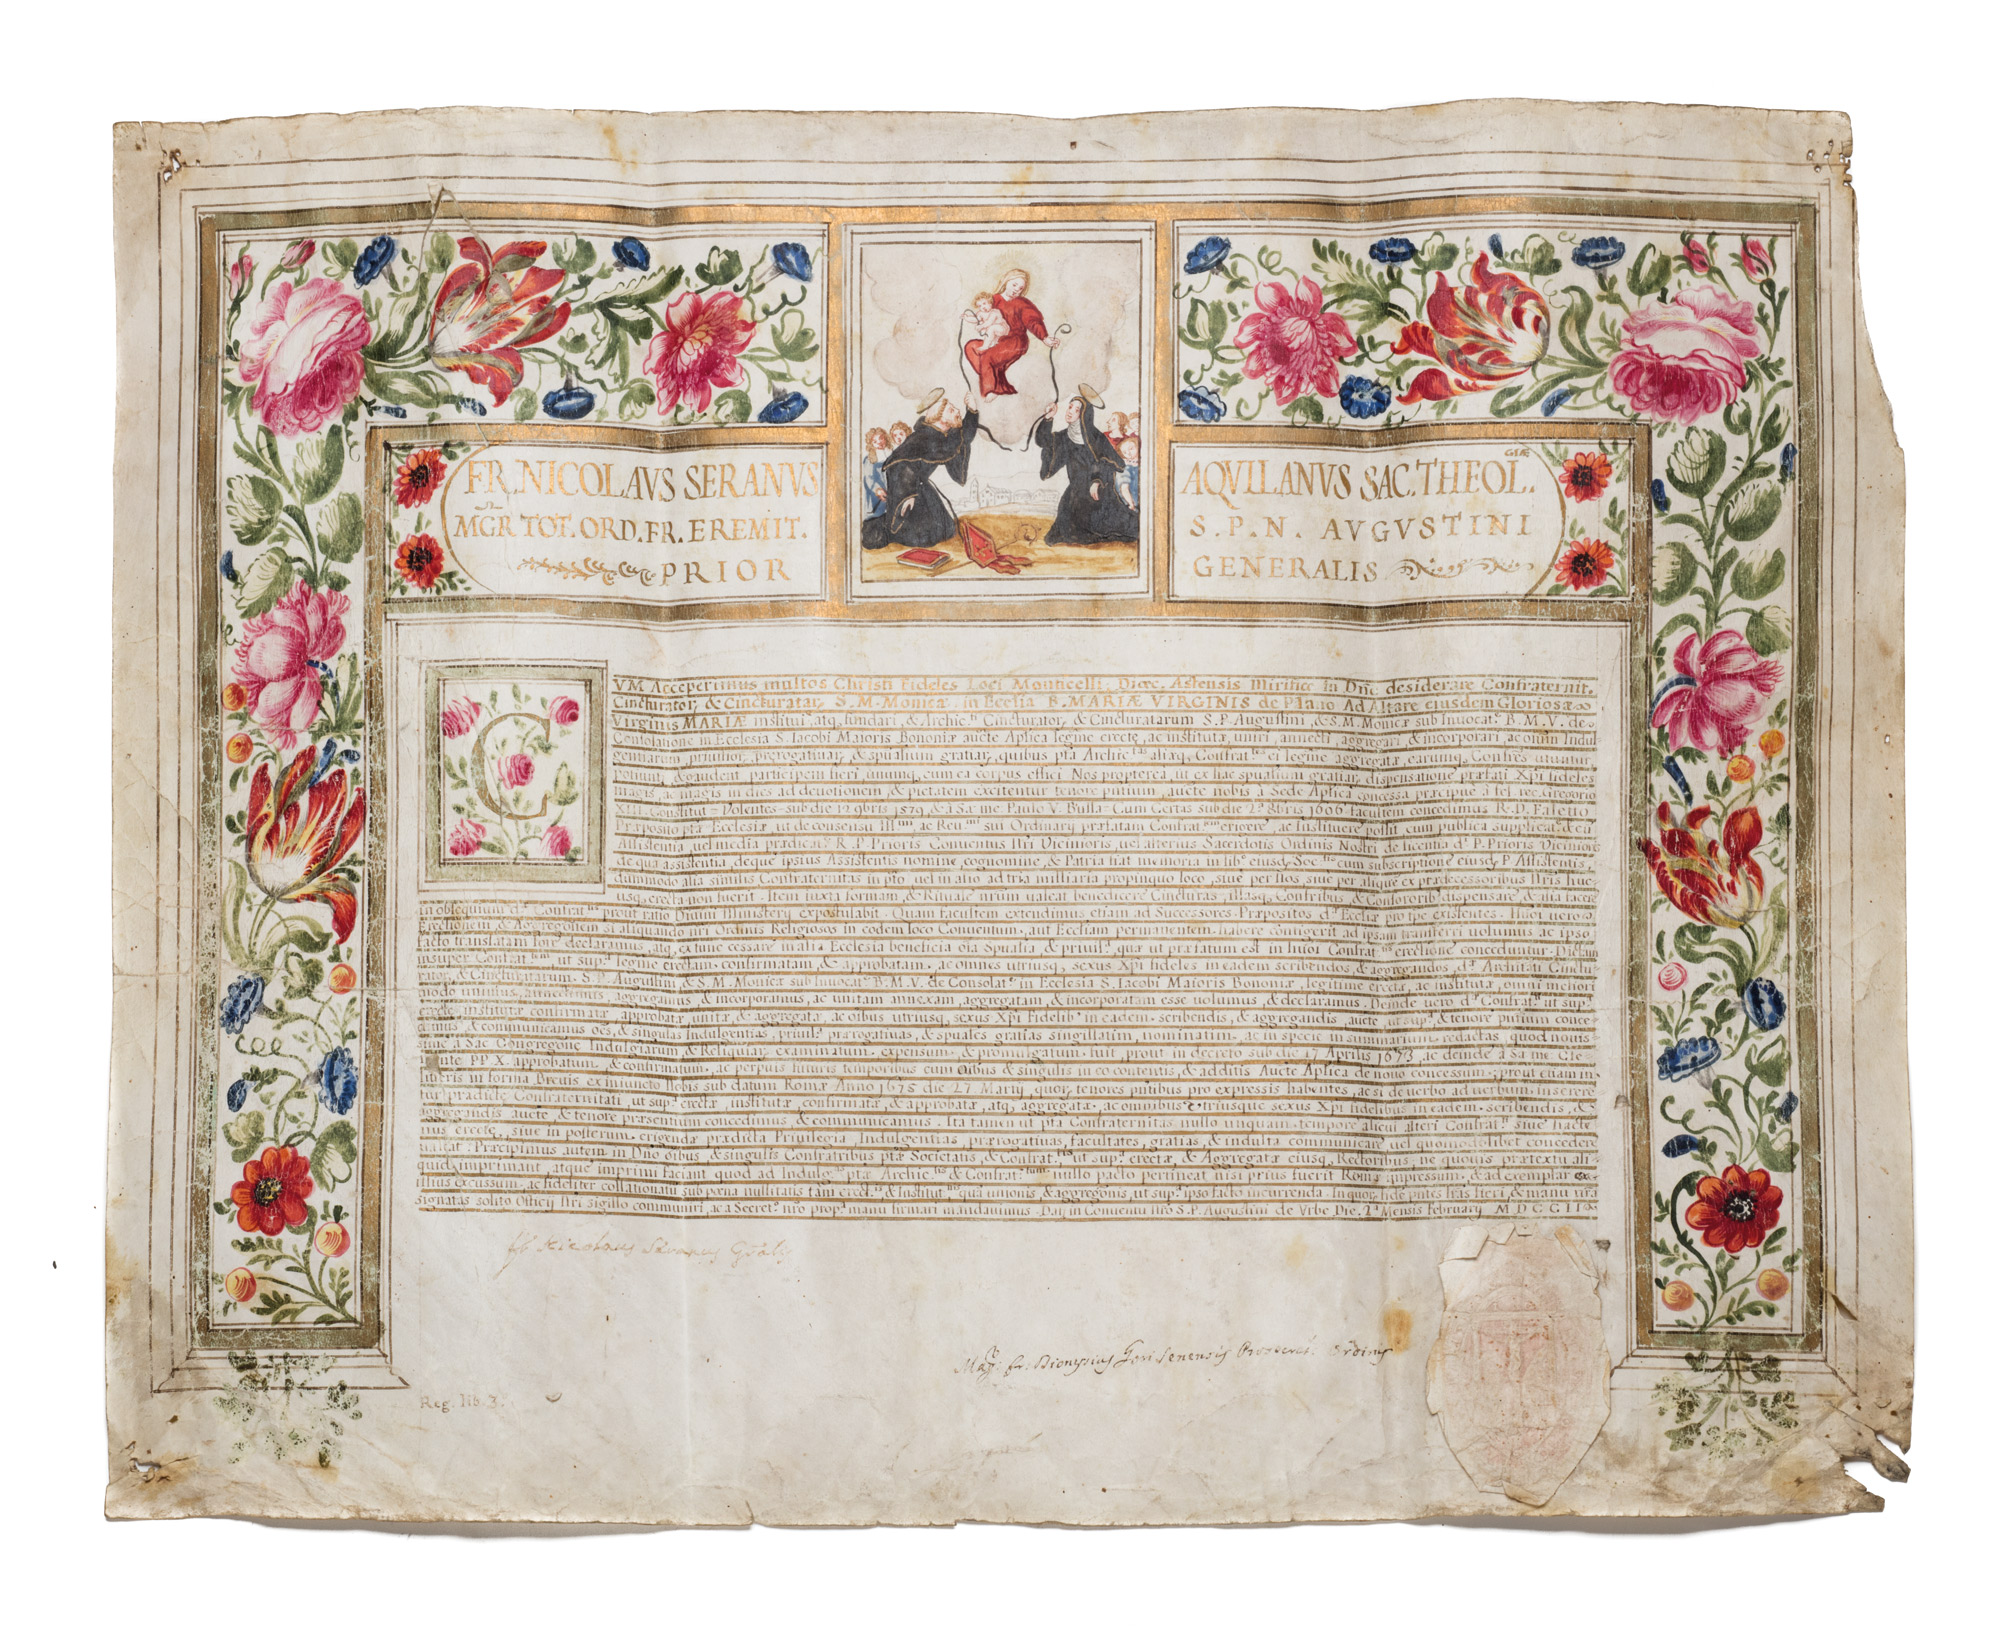 FR. NICOLAVS SERANVS AQVILANVS SAC. THEOL. GIÆ
MGR TOT. ORD. FR. EREMIT. S. P. N. AVGVSTINI
PRIOR GENERALIS
CVM Acceperimus multos Christi Fideles Loci Monticelli, Diœc. Astensis Mirifice in Dnō desiderare Confraternit.
Cincturator, & Cincturatar, S. M. Monicæ in Ecclia B. MARIÆ VIRGINIS de Plano Ad Altare eiusdem Gloriosæ
Virginis MARIÆ institui, atq, fundari, & Archic. Cincturator, & Cincturatarum S. P. Augustini, & S. M. Monicæ sub Invocat. B. M. V. de
Consolatione in Ecclesia S. Iacobi Maioris Bononiæ aucte Aplica legime erectę, ac institutæ, uniri, annecti, aggregari, & incorporari, ac omn Indul
gentiarum, privilior, prerogativar, & spualium gratiar, quibus pta Archic.tas aliæq, Confrat.tes ei legime aggregatæ, earumq, Confres utuntur,
potiunt, & gaudent participem fieri, unumq, cum ea corpus effici. Nos propterea, ut ex hac spualium gratiar, dispensatione præfati Xpi fideles
magis, ac magis in dies ad devotionem, & pietatem excitentur tenore putium, aucte nobis à Sede Aplica concessa præcipue à fel. rec. Gregorio
XIII. Constit. Volentes sub die 1579, & à Sa. me. Paulo V. Bulla Cum Certas sub die 1606 facultem concedimus R. D. P.
Præposito ptæ Ecclesiæ, ut de consensu Ill.mi, ac Reu.mi sui Ordinarij prætatam Confrat.tem erigere, ac Instituere possit cum publica supplicat.e & cu
Assistentia vel media prædicat.e R. P. Prioris Conventus Nri Vicinioris, vel alterius Sacerdotis Ordinis Nostri de licentia d.i P. Prioris Vicinioris
de qua assistentia, deque ipsius Assistentis nomine, cognomine, & Patria fiat memoria in lib.o eiusdę Soc.tis cum subscriptione eiusdę P. Assistentis,
dummodo alia similis Confraternitas in pto vel in alio ad tria milliaria propinquo loco, sive per Nos, sive per alique ex prædecessoribus Nris huc
usq, erecta non fuerit. Item iuxta formam, & Rituale nrum valeat benedicere Cincturas, illasq, Confribus, & Consororib. dispensare, & alia facere
in obsequium d.æ Confrat.tis prout ratio Divini Ministerij expostulabit. Quam facultem extendimus etiam ad Successores Præpositos d.æ Ecclæ pro tpe existentes. Huoi vero
Erectionem, & Aggregationem si aliquando Nri Ordinis Religiosos in eodem loco Conventum, aut Eccliam permanentem habere contigerit ad ipsam transferri volumus, ac ipso
facto translatam fore declaramus, atq, tunc cessare in alia Ecclesia beneficia oia Spualia, & privil. quæ ut prælatum est in huoi Confrat.tis erectione conceduntur. Dictam
insuper Confrat.tem ut sup. legime erectam, confirmatam, & approbatam, ac omnes utriusq, sexus Xpi fideles in eadem scribendos, & aggregandos, d.æ Archifati Cinctu
rator, & Cincturatarum S. P. Augustini, & S. M. Monicæ sub Invocat. B. M. V. de Consolat.e in Ecclesia S. Iacobi Maioris Bononiæ, legitime erectæ, ac institutæ, omni meliori
modo unimus, annectimus, aggregamus, & incorporamus, ac unitam, annexam, aggregatam, & incorporatam esse volumus, & declaramus. Deinde vero d.æ Confrat.i ut sup.
erectę, institutæ, confirmatæ, approbatæ, unitæ, & aggregatæ, ac oibus utriusq, sexus Xpi Fidelib. in eadem scribendis, & aggregandis, aucte, ut sup. & tenore putium conce
dimus, & communicamus oēs, & singulas Indulgentias, privil. prærogativas, & spuales gratias singillatim, nominatim, ac in specie in summarium redactas quod novis
sime à Sac. Congregone Indulgtiarum & Reliquiar, examinatum, expensum, & promulgatum fuit, prout in decreto sub die 17 Aprilis 1673, ac deinde à Sa. me. Cle
mente PP. X. approbatum, & confirmatum, ac perpuis futuris temporibus cum Oibus & singulis in eo contentis, & additis Aucte Aplica de novo concessum; prout etiam in
literis in forma Brevis ex iniuncto Nobis sub datum Romæ Anno 1675 die 27 Martij, quor, tenores putibus pro expressis habentes, ac si de verbo ad verbum Inserere
tur prædictę Confraternitati, ut sup. erectæ, institutæ, confirmatæ, & approbatæ, atq, aggregatæ, ac omnibus utriusque sexus Xpi fidelibus in eadem scribendis, &
aggregandis aucte, & tenore præsentium concedimus & communicamus. Ita tamen ut pta Confraternitas nullo unquam tempore alicui alteri Confrat.i sive hacte
nus erectę, sive in posterum erigendæ prædicta Privilegia, Indulgentias, prærogativas, facultates, gratias, & indulta communicare vel quomodolibet concedere
valeat. Præcipimus autem in Dnō oibus, & singulis Confratribus ptæ Societatis, & Confrat.tis, ut sup. erectæ, & Aggregatæ eiusq, Rectoribus, ne quovis prætextu ali
quid imprimant, atque imprimi faciant quod ad Indulg.as ptæ Archic.tis & Confrat.tum nullo pacto pertineat nisi prius fuerit Romæ impressum, & ad exemplar
illius excussum, ac fideliter collationatu sub pœna nullitatis tam erect.is & Institut.is quā unionis, & aggregonis, ut sup. ipso facto incurrenda. In quor, fidē putes lras fieri, & manu nra
signatas solito Officij Nri sigillo communiri, ac a Secret.o nro prop.a manu firmari mandavimus. Dat. in Conventu Nro S. P. Augustini de Vrbe Die. 2.a Mensis February MDCCII
fr Nicolaus Seranus Gralis
Mag: fr: Dionysius Gori Senensis Ordinis
Reg. lib. 3.